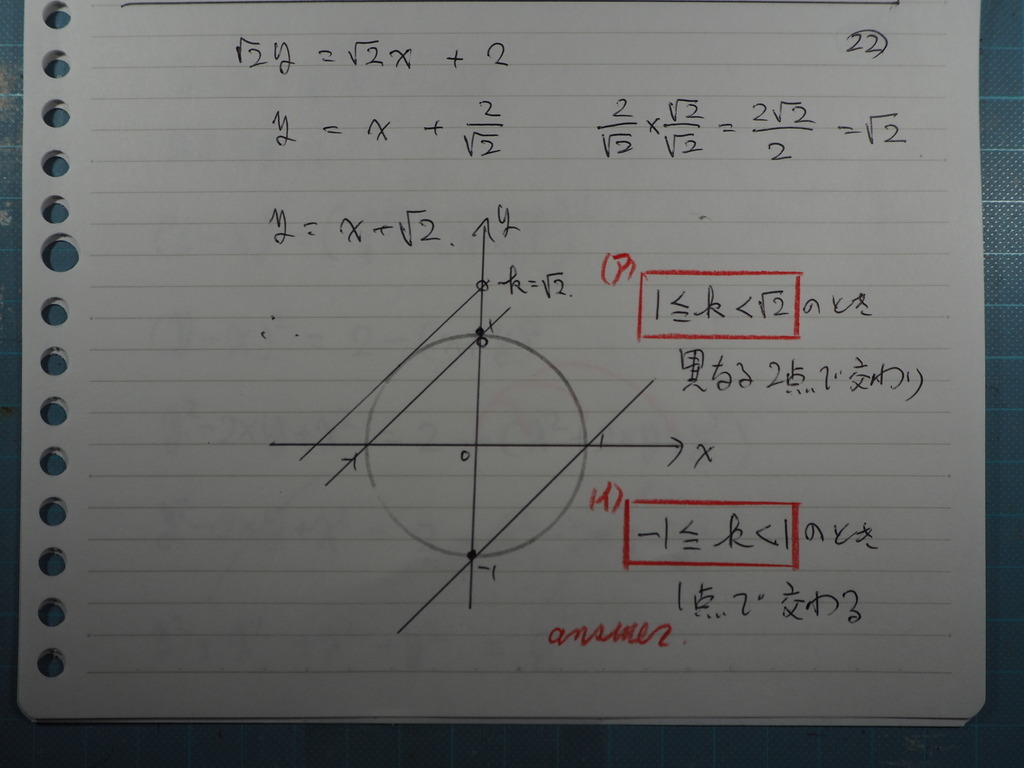 22)
√2y = √2x + 2
y = x + 2/√2   2/√2 × √2/√2 = 2√2/2 = √2
y = x + √2.
y
k = √2.
(ア)
1 ≦ k < √2 のとき
異なる2点で交わり
∴
1
-1
0
1
x
(イ)
-1 ≦ k < 1 のとき
-1
1点で交わる
answer.